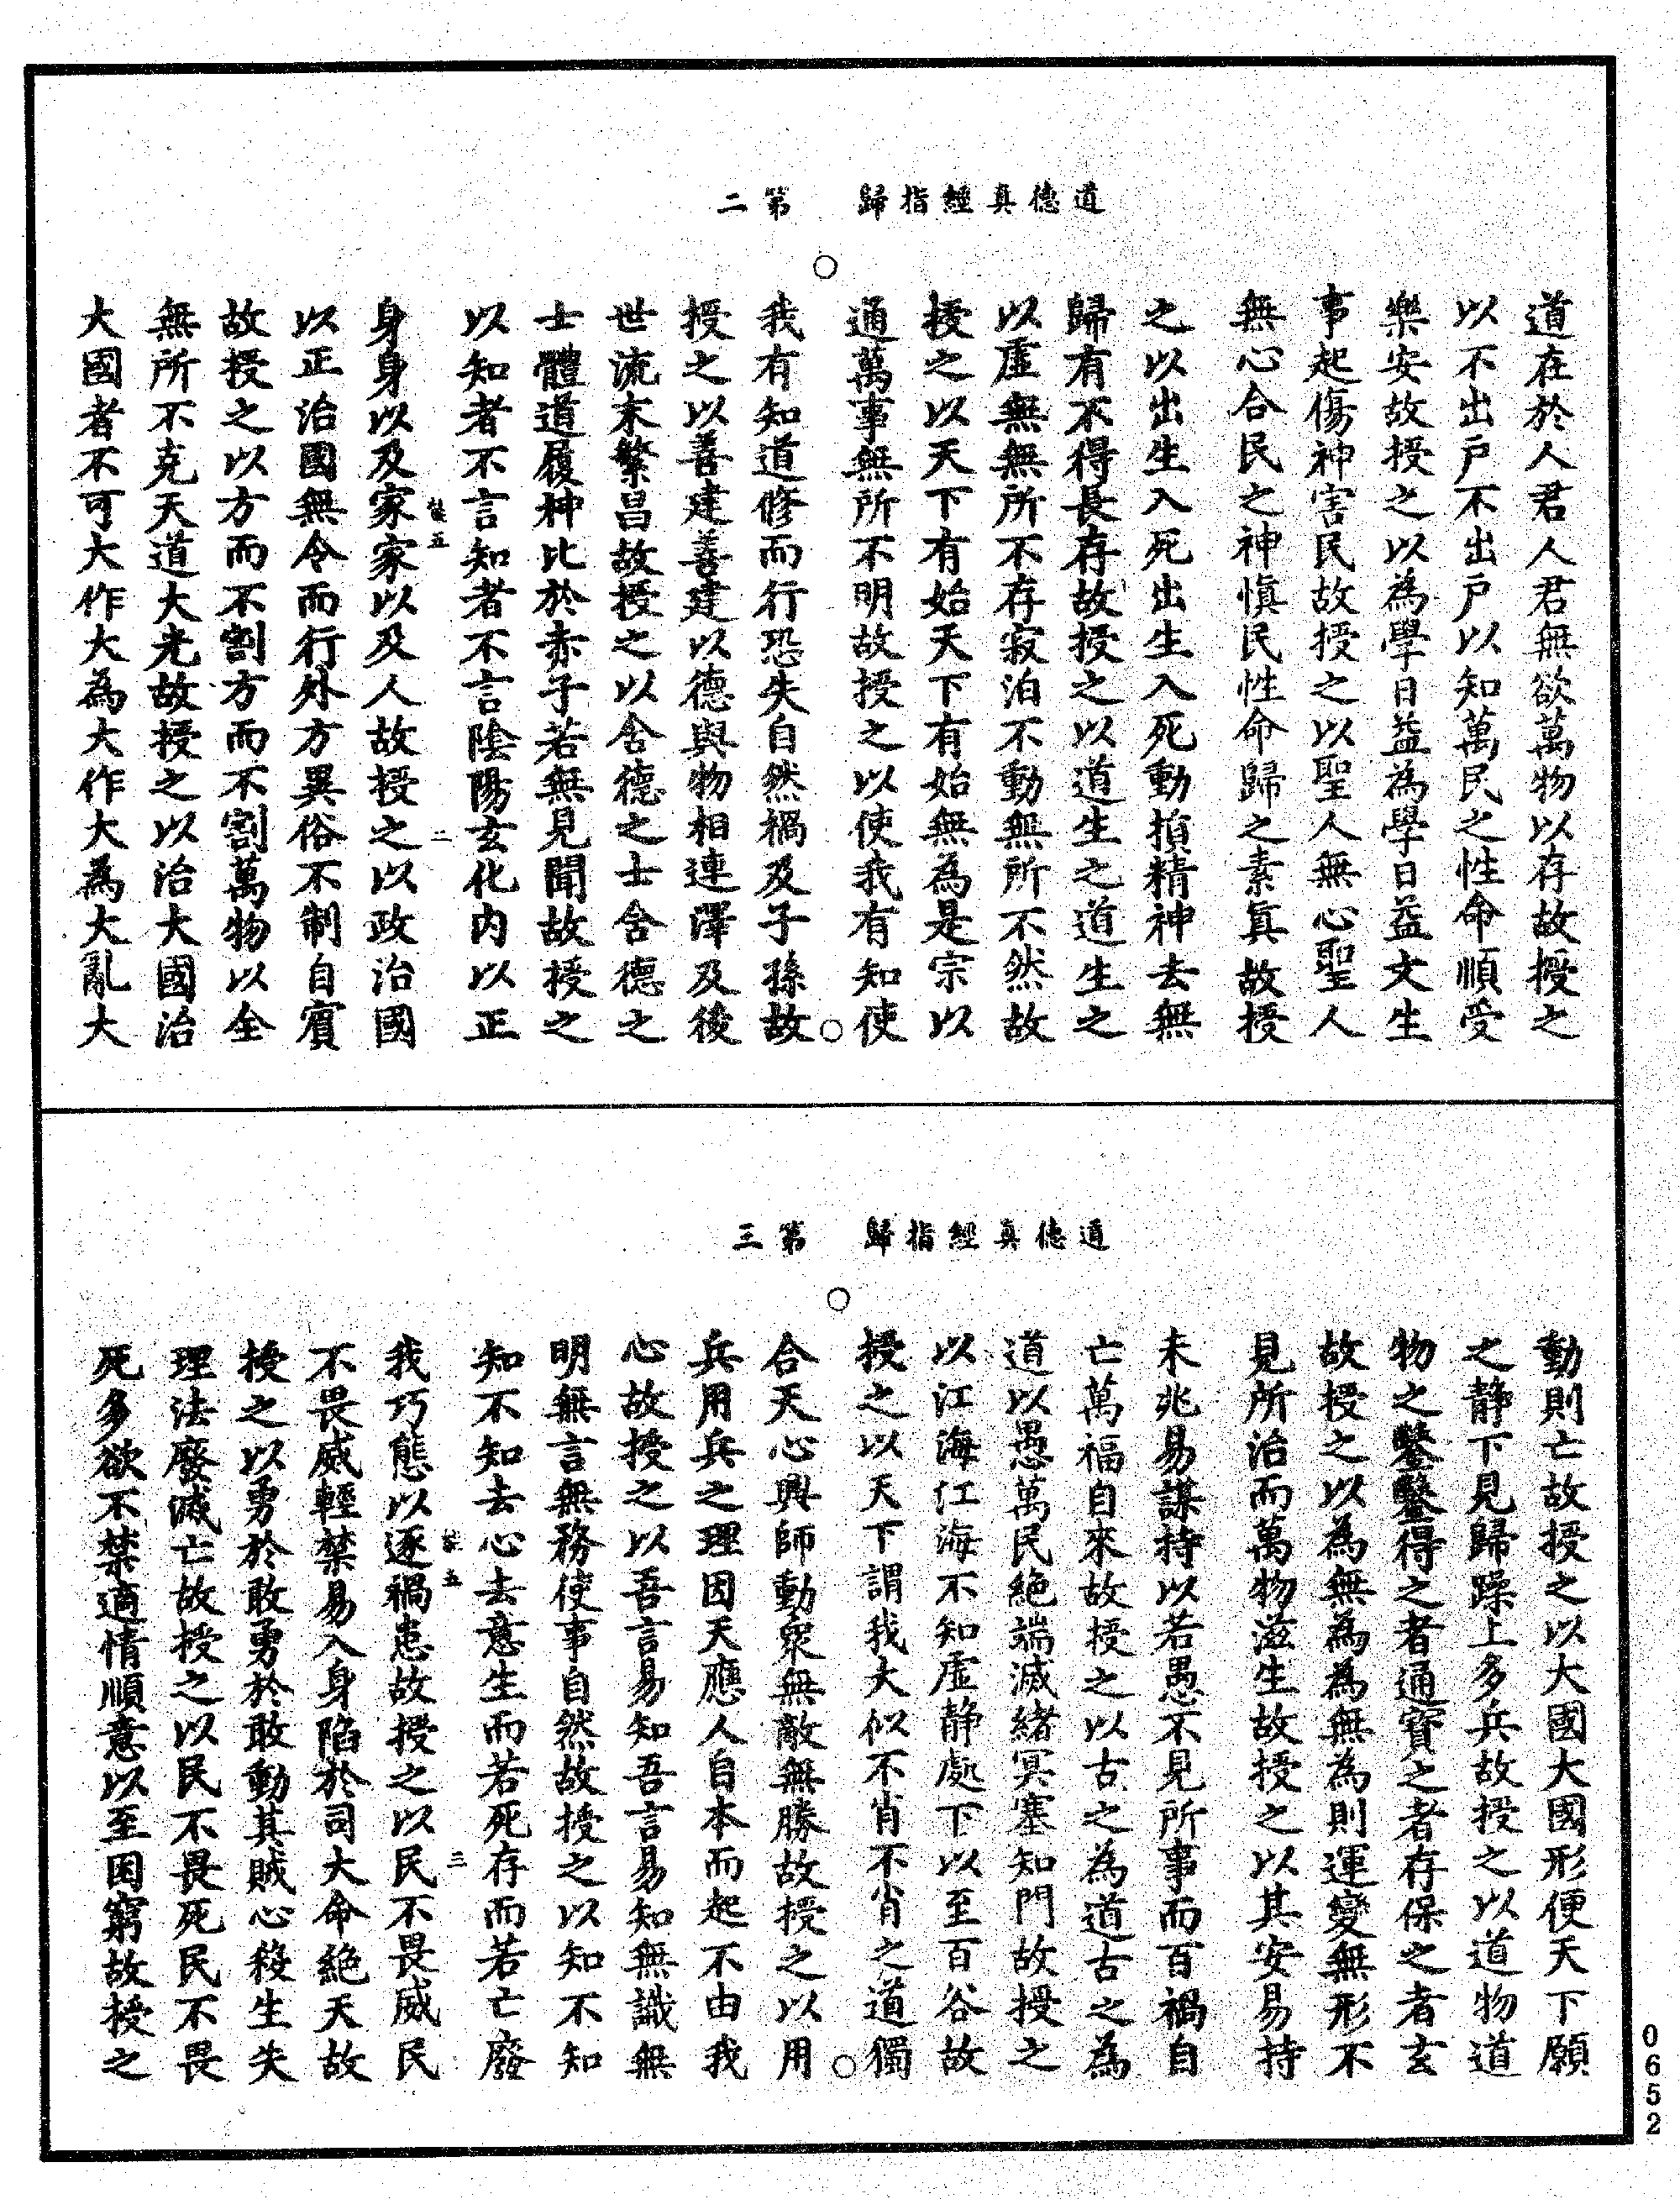 道德真經指歸　第二
道在於人君人君無欲萬物以存故授之
以不出戶不出戶以知萬民之性命順受
樂安故授之以為學日益為學日益文生
事起傷神害民故授之以聖人無心聖人
無心合民之神慎民性命歸之素真故授
之以出生入死出生入死動損精神去無
歸有不得長存故授之以道生之道生之
以虛無無所不存寂泊不動無所不然故
授之以天下有始天下有始無為是宗以
通萬事無所不明故授之以使我有知使
○
○
我有知道修而行恐失自然禍及子孫故
授之以善建善建以德與物相連澤及後
世流末繁昌故授之以含德之士含德之
士體道履神比於赤子若無見聞故授之
以知者不言知者不言陰陽玄化內以正
五 二
身身以及家家以及人故授之以政治國
以正治國無令而行外方異俗不制自賓
故授之以方而不割方而不割萬物以全
無所不克天道大光故授之以治大國治
大國者不可大作大為大作大為大亂大
道德真經指歸　第三
動則亡故授之以大國大國形便天下願
之靜下見歸躁上多兵故授之以道物道
物之鑿鑿得之者通寶之者存保之者玄
故授之以為無為為無為則運變無形不
見所治而萬物滋生故授之以其安易持
未兆易謀持以若愚不見所事而百禍自
亡萬福自來故授之以古之為道古之為
道以愚萬民絕端滅緒冥塞知門故授之
以江海江海不知虛靜處下以至百谷故
授之以天下謂我大似不肖不肖之道獨
○
○
合天心興師動眾無敵無勝故授之以用
兵用兵之理因天應人自本而起不由我
心故授之以吾言易知吾言易知無識無
明無言無務使事自然故授之以知不知
知不知去心去意生而若死存而若亡廢
五 三
我巧態以逐禍患故授之以民不畏威民
不畏威輕禁易入身陷於司大命絕天故
授之以勇於敢勇於敢動其賊心殺生失
理法廢滅亡故授之以民不畏死民不畏
死多欲不禁適情順意以至困窮故授之
0652